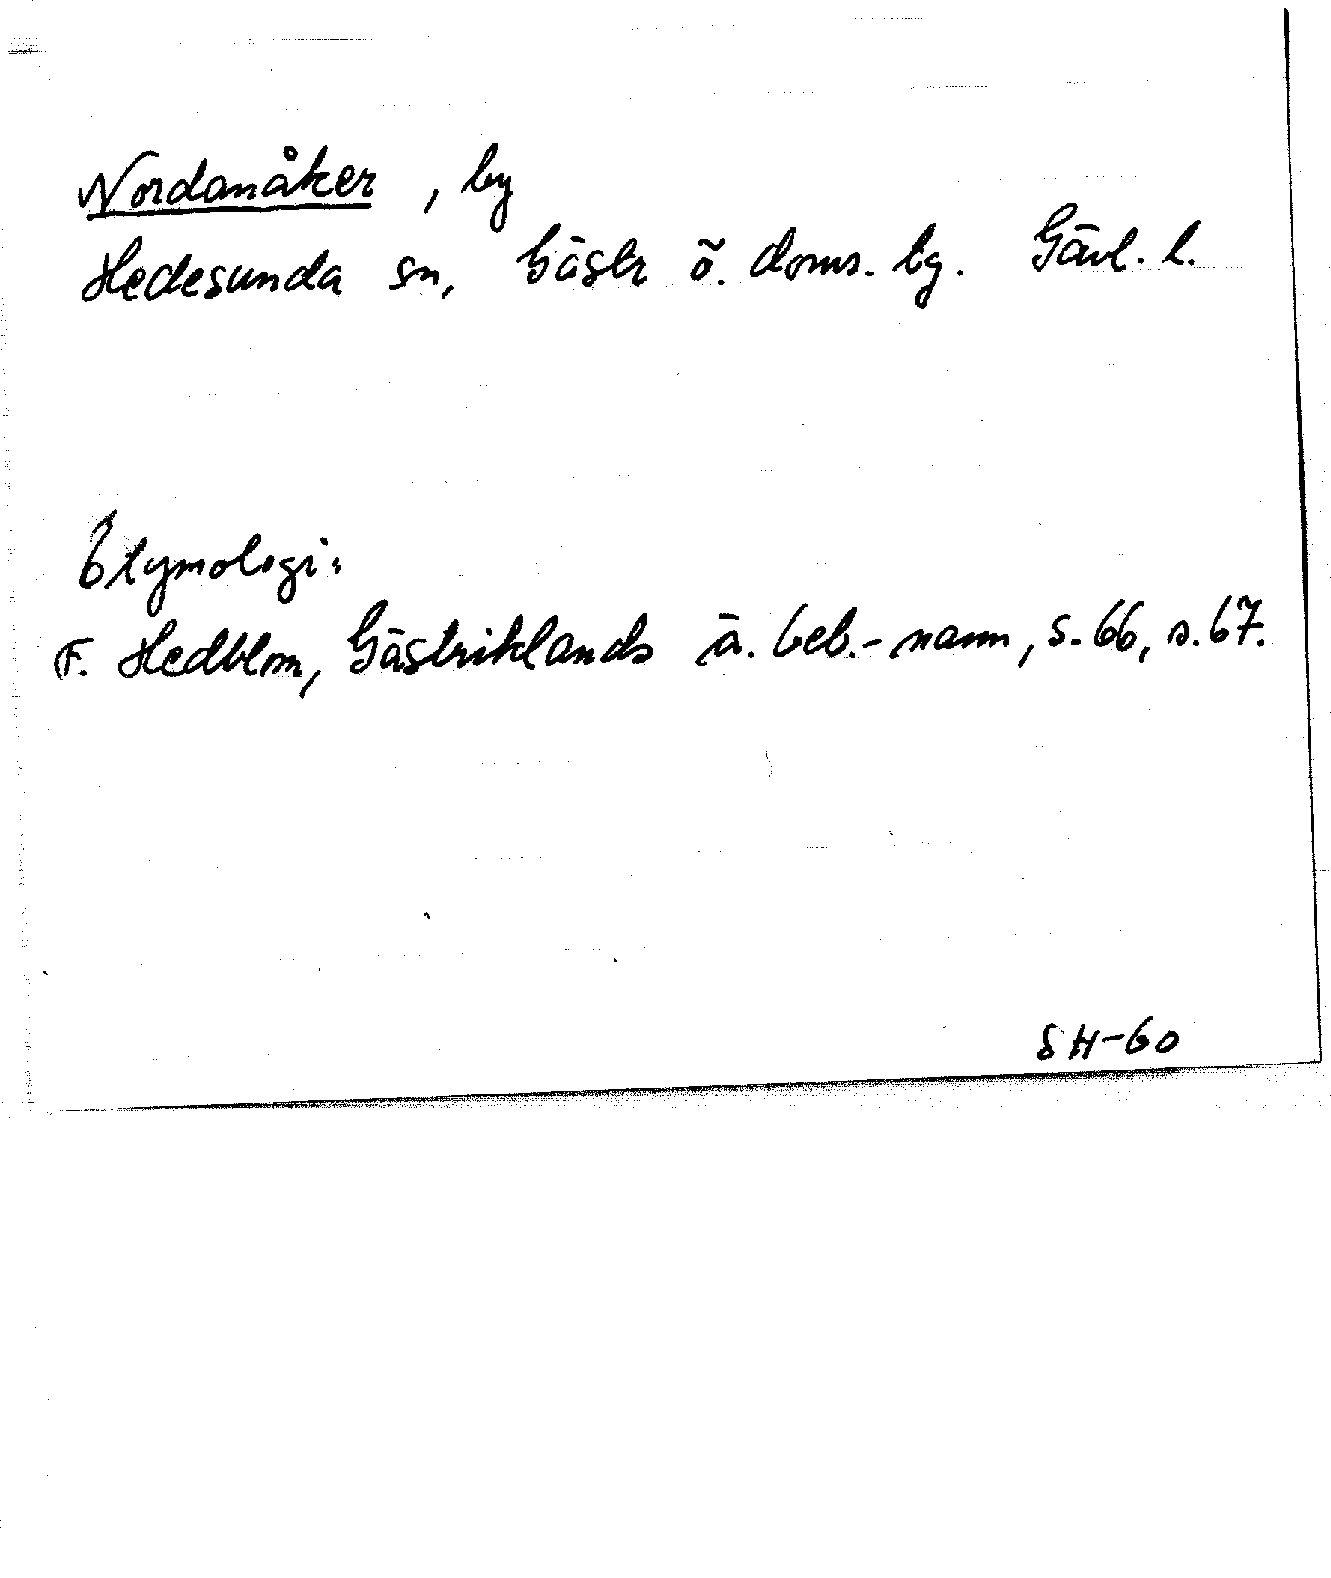 Nordanåker, by
Hedesunda sn, Gästr ö. doms. bg. Gävl. l.
Etymologi:
F. Hedblom, Gästriklands ä. beb.-namn, s. 66, s. 67.
SH-60